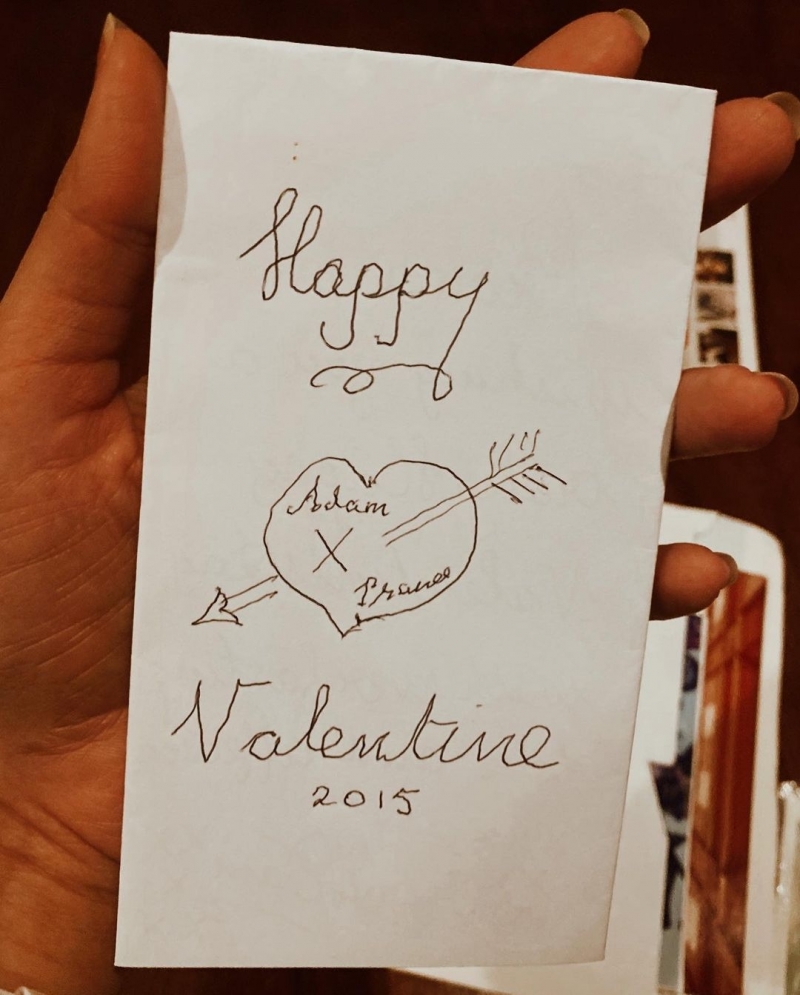 Happy
Adam
X
Valentine
2015